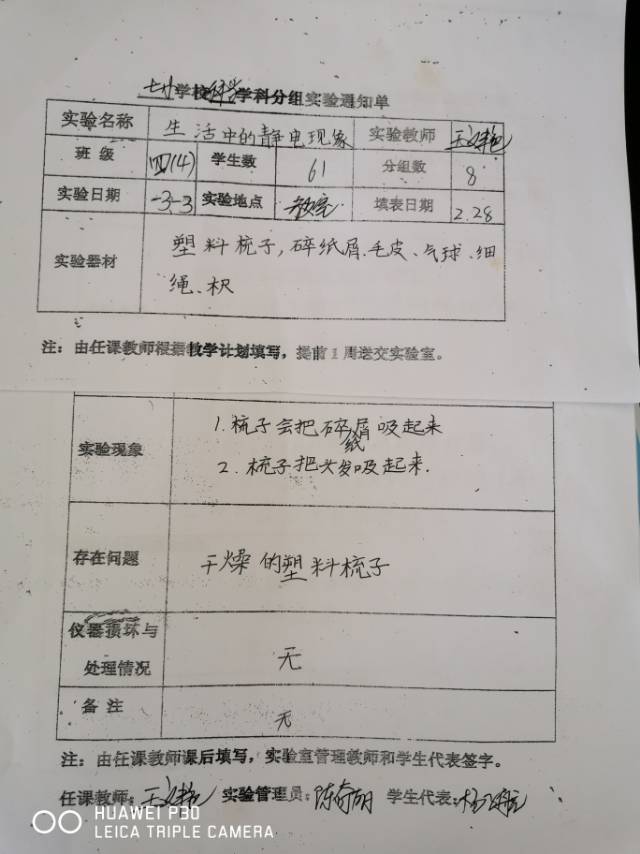 七小学校科学学科分组实验通知单
实验名称 生活中的静电现象 实验教师
班 级 四(4) 学生数 61 分组数 8
实验日期 -3-3 实验地点 教室 填表日期 2.28
实验器材 塑料梳子,碎纸屑、毛皮、气球、细
绳、木尺
注：由任课教师根据教学计划填写，提前1周送交实验室。
实验现象 1.梳子会把碎纸屑吸起来
2.梳子把头发吸起来.
存在问题 干燥的塑料梳子
仪器损坏与
处理情况 无
备 注 无
注：由任课教师课后填写，实验室管理教师和学生代表签字。
任课教师： 实验管理员： 学生代表：
HUAWEI P30
LEICA TRIPLE CAMERA